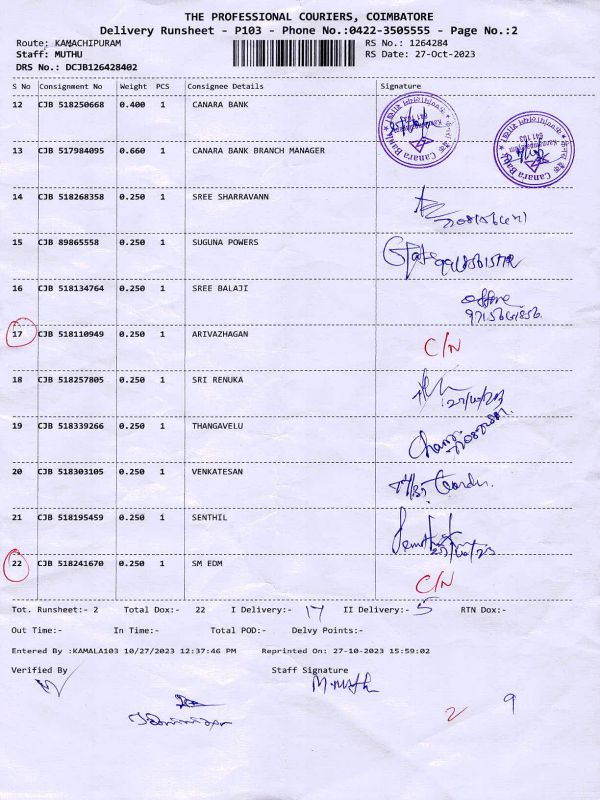 THE PROFESSIONAL COURIERS, COIMBATORE
Delivery Runsheet - P103 - Phone No.:0422-3505555 - Page No.:2
Route: KAMACHIPURAM RS No.: 1264284
Staff: MUTHU RS Date: 27-Oct-2023
DRS No.: DCJB126428402
S No Consignment No Weight PCS Consignee Details Signature
12 CJB 518250668 0.400 1 CANARA BANK
13 CJB 517984095 0.660 1 CANARA BANK BRANCH MANAGER
Canara Bank
Canara Bank
14 CJB 518268358 0.250 1 SREE SHARRAVANN
15 CJB 89865558 0.250 1 SUGUNA POWERS
16 CJB 518134764 0.250 1 SREE BALAJI
17 CJB 518110949 0.250 1 ARIVAZHAGAN C/N
18 CJB 518257805 0.250 1 SRI RENUKA 27/10/23
19 CJB 518339266 0.250 1 THANGAVELU
20 CJB 518303105 0.250 1 VENKATESAN
21 CJB 518195459 0.250 1 SENTHIL 27/10/23
22 CJB 518241670 0.250 1 SM EDM C/N
Tot. Runsheet:- 2 Total Dox:- 22 I Delivery:- 17 II Delivery:- 5 RTN Dox:-
Out Time:- In Time:- Total POD:- Delvy Points:-
Entered By :KAMALA103 10/27/2023 12:37:46 PM Reprinted On: 27-10-2023 15:59:02
Verified By Staff Signature
2 9